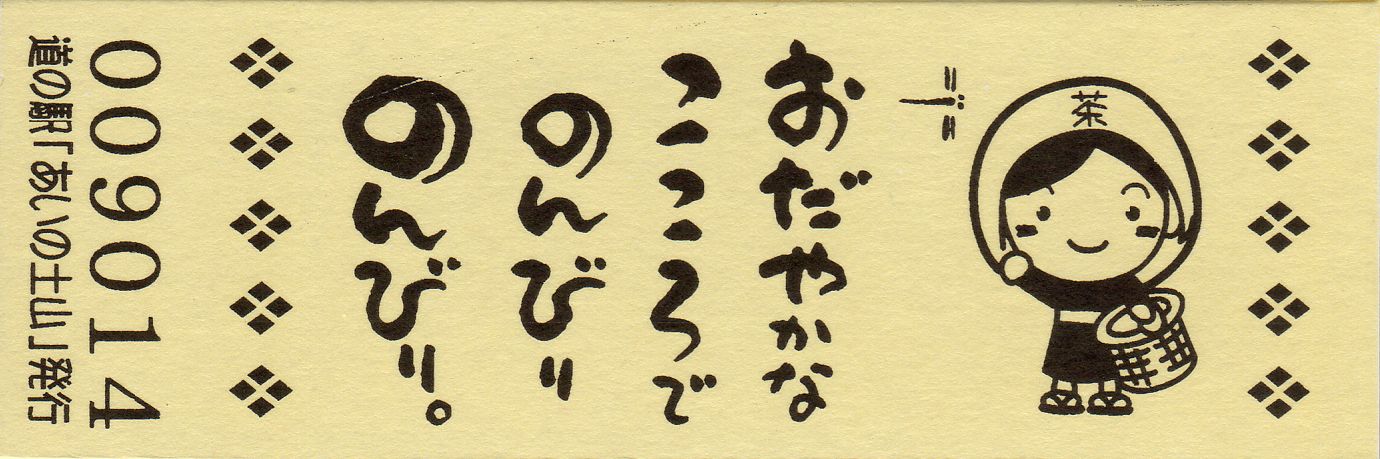 茶
おだやかな
こころで
のんびり
のんびり。
009014
道の駅「あいの土山」発行